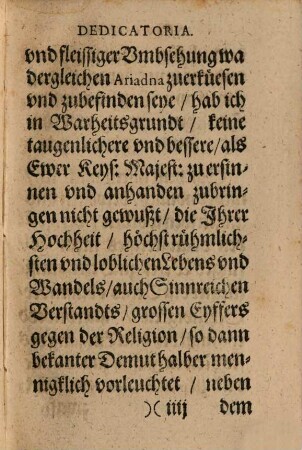 DEDICATORIA.
vnd fleissiger Vmbsehung wa
dergleichen Ariadna zuerküesen
vnd zubefinden seye / hab ich
in Warheitsgrundt / keine
taugenlichere vnd bessere / als
Ewer Keys: Majest: zu ersin-
nen vnd anhanden zubrin-
gen nicht gewußt / die Jhrer
Hochheit / höchst rühmlich-
sten vnd loblichen Lebens vnd
Wandels / auch Sinnreichen
Verstandts / grossen Eyffers
gegen der Religion / so dann
bekanter Demut halber men-
nigklich vorleuchtet / neben
)( iiij dem